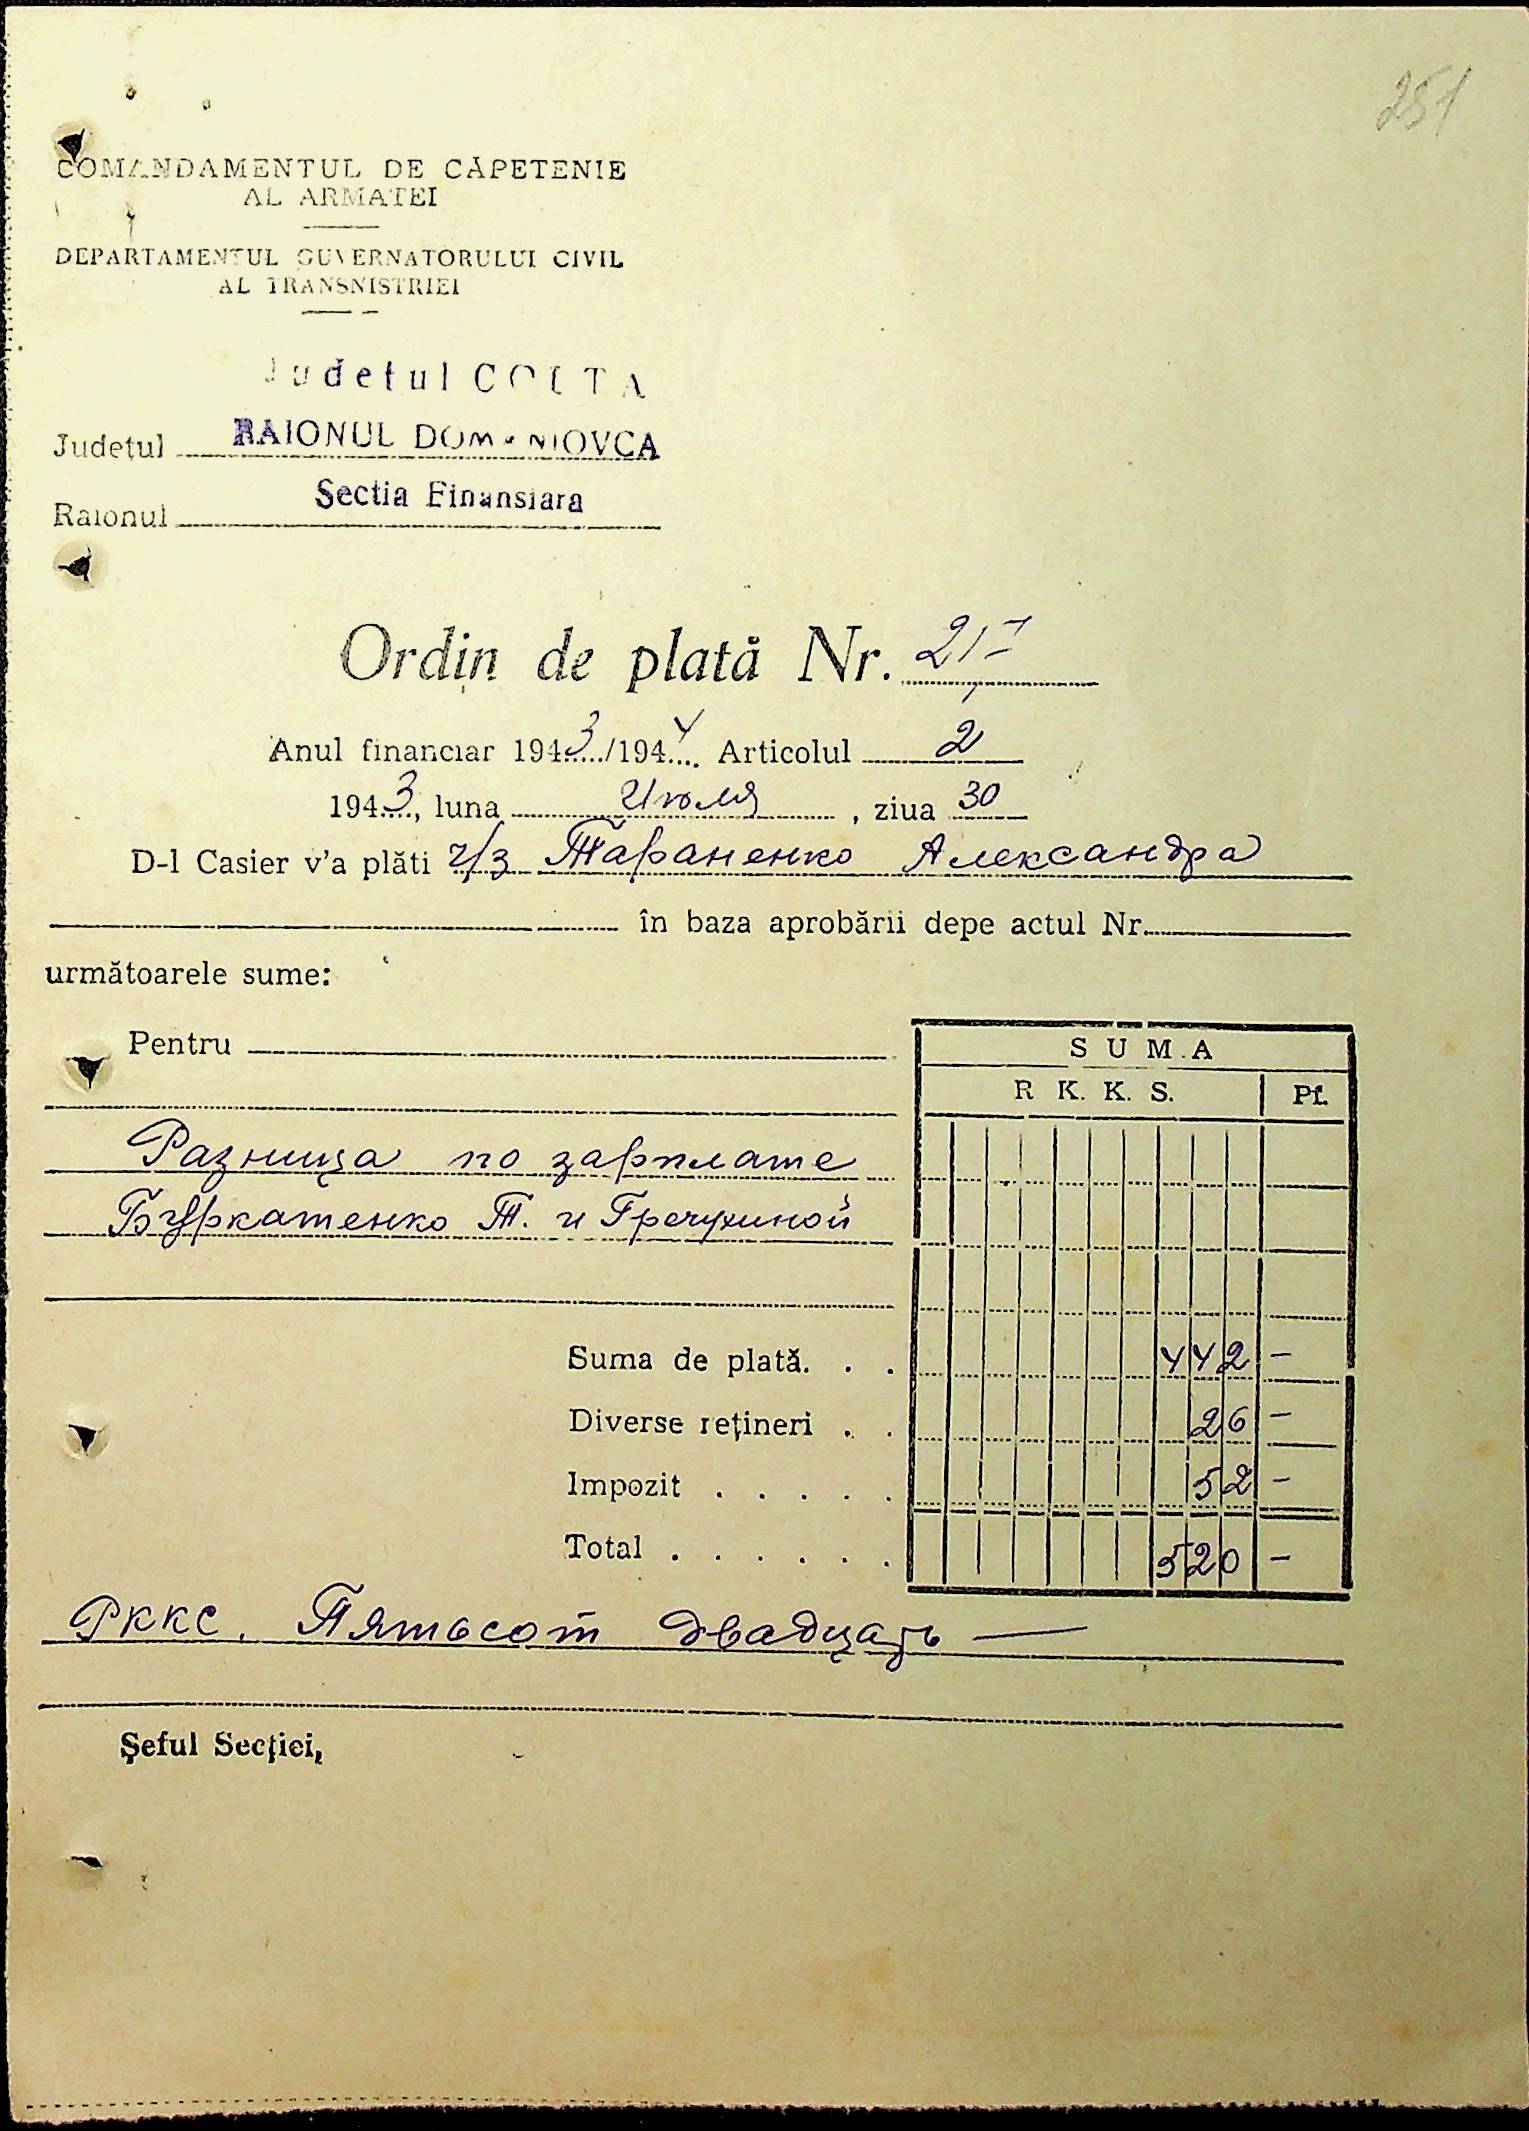 251
COMANDAMENTUL DE CĂPETENIE
AL ARMATEI
DEPARTAMENTUL GUVERNATORULUI CIVIL
AL TRANSNISTRIEI
Judetul COLTA
Județul RAIONUL DOMANIOVCA
Raionul Sectia Finansiara
Ordin de plată Nr. 217
Anul financiar 1943/1944 Articolul 2
1943, luna Июля, ziua 30
D-l Casier v'a plăti ч/з Тараненко Александра
în baza aprobării depe actul Nr.
următoarele sume:
Pentru
SUMA
R K. K. S. Pf.
Разница по зарплате
Буркатенко Т. и Гречухиной
Suma de plată. . . 442 –
Diverse rețineri . . 26 –
Impozit . . . . . 52 –
Total . . . . . . 520 –
РККС. Пятьсот двадцать —
Șeful Secției,